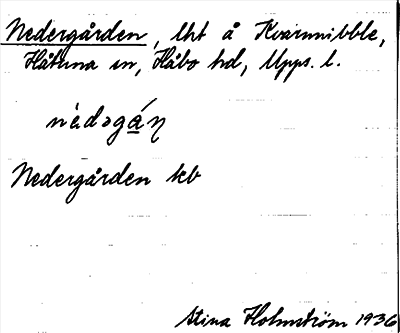 Nedergården, lht å Kvarnnibble,
Håtuna sn, Håbo hd, Upps. l.
nèdəgá̱ɳ
Nedergården kb
Stina Holmström 1936